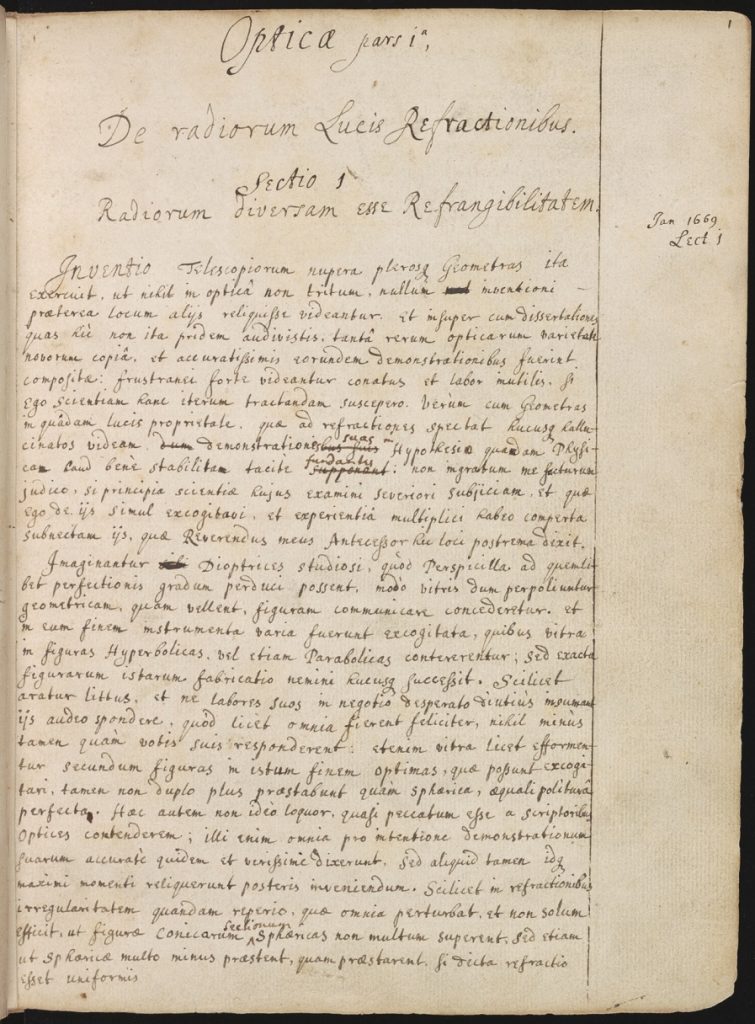 1
Opticæ pars 1ª,
De radiorum Lucis Refractionibus.
Sectio 1
Radiorum diversam esse Refrangibilitatem.
Jan 1669
Lect 1
Inventio Telescopiorum nupera plerosq Geometras ita
exercuit, ut nihil in opticâ non tritum, nullum inventioni
præterea locum alijs reliquisse videantur. Et insuper cum dissertationes
quas hîc non ita pridem audivistis, tantâ rerum opticarum varietate
novorum copiâ, et accuratissimis eorundem demonstrationibus fuerint
compositæ: frustranei forte videantur conatus et labor inutilis, si
Ego Scientiam hanc iterum tractandam suscepero. Verùm cum Geometras
in quâdam lucis proprietate, quæ ad refractiones spectat hucusq hallu-
cinatos videam, dum demonstrationes suas in Hypothesi quadam Physi-
cam haud benè stabilitam tacitè fundantes supponant: non ingratum me facturum
judico, si principia scientiæ hujus examini severiori subjiciam, et quæ
Ego de ijs simul excogitavi, et experientiâ multiplici habeo comperta
subnectam ijs, quæ Reverendus meus Antecessor hîc loci postrema dixit.
Imaginantur sibi Dioptrices studiosi, quòd Perspicilla ad quemli-
bet perfectionis gradum perduci possent, modò vitris dum perpoliuntur
geometricam, quam vellent, figuram communicare concederetur. et
in eum finem instrumenta varia fuerunt excogitata, quibus vitra
in figuras Hyperbolicas, vel etiam Parabolicas contererentur; sed exacta
figurarum istarum fabricatio nemini hucusq successit. Scilicet
aratur littus, et ne labores suos in negotio desperato diutiùs insumant
ijs audeo spondere, quòd licet omnia fierent feliciter, nihil minùs
tamen quàm votis suis responderent: etenim vitra licet efformen-
tur secundum figuras in istum finem optimas, quæ possunt excogi-
tari, tamen non duplo plus præstabunt quam sphærica, æquali politurâ
perfecta. Hæc autem non ideò loquor, quasi peccatum esse a scriptoribus
Optices contenderem; illi enim omnia pro intentione demonstrationum
suarum accuratè quidem et verissimè dixerunt, sed aliquid tamen idq
maximi momenti reliquerunt posteris inveniendum. Scilicet in refractionibus
irregularitatem quandam reperio, quæ omnia perturbat, et non solum
efficit, ut figuræ conicarum sectionum Sphæricas non multum superent, sed etiam
ut Sphæricæ multo minus præstent, quam præstarent, si dicta refractio
esset uniformis